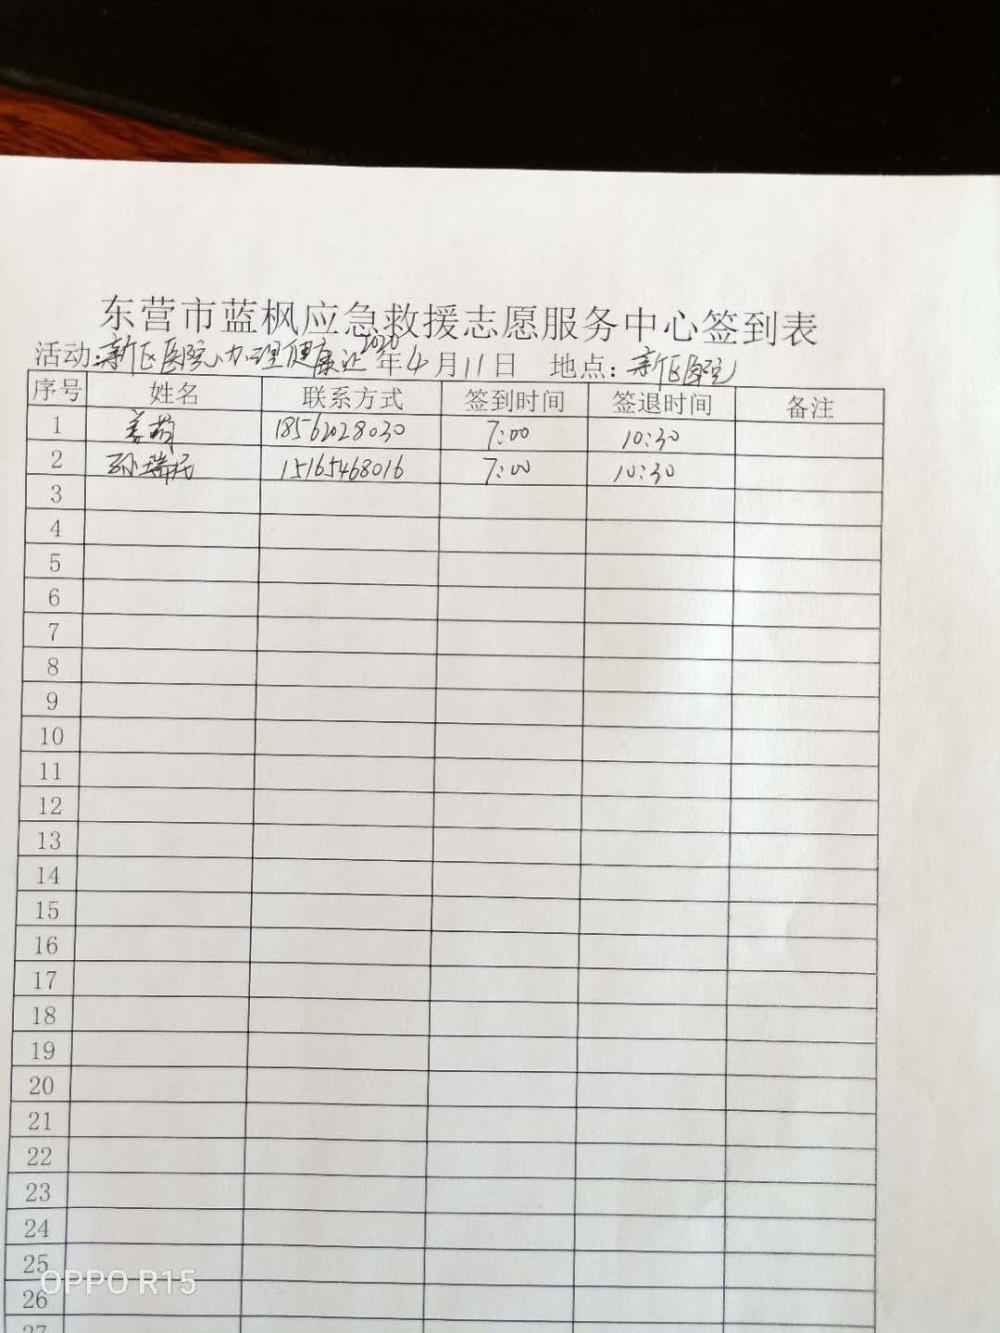 东营市蓝枫应急救援志愿服务中心签到表
活动:新区医院办理健康证 2020年4月11日 地点:新区医院
序号 姓名 联系方式 签到时间 签退时间 备注
1 姜萌 18562028030 7:00 10:30
2 孙瑞民 15165468016 7:00 10:30
3
4
5
6
7
8
9
10
11
12
13
14
15
16
17
18
19
20
21
22
23
24
25
26
27
OPPO R15